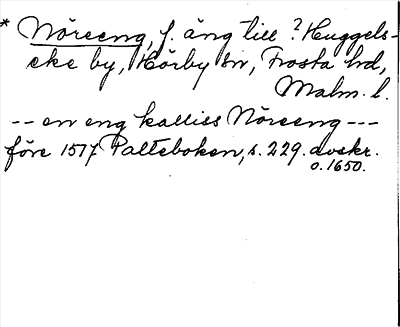 * Nöreeng, f. äng till ? Huggels-
eke by, Hörby sn, Frosta hd,
Malm. l.
-- en eng kalliss Nöreeng ---
före 1517 Palteboken, s. 229. avskr.
o. 1650.